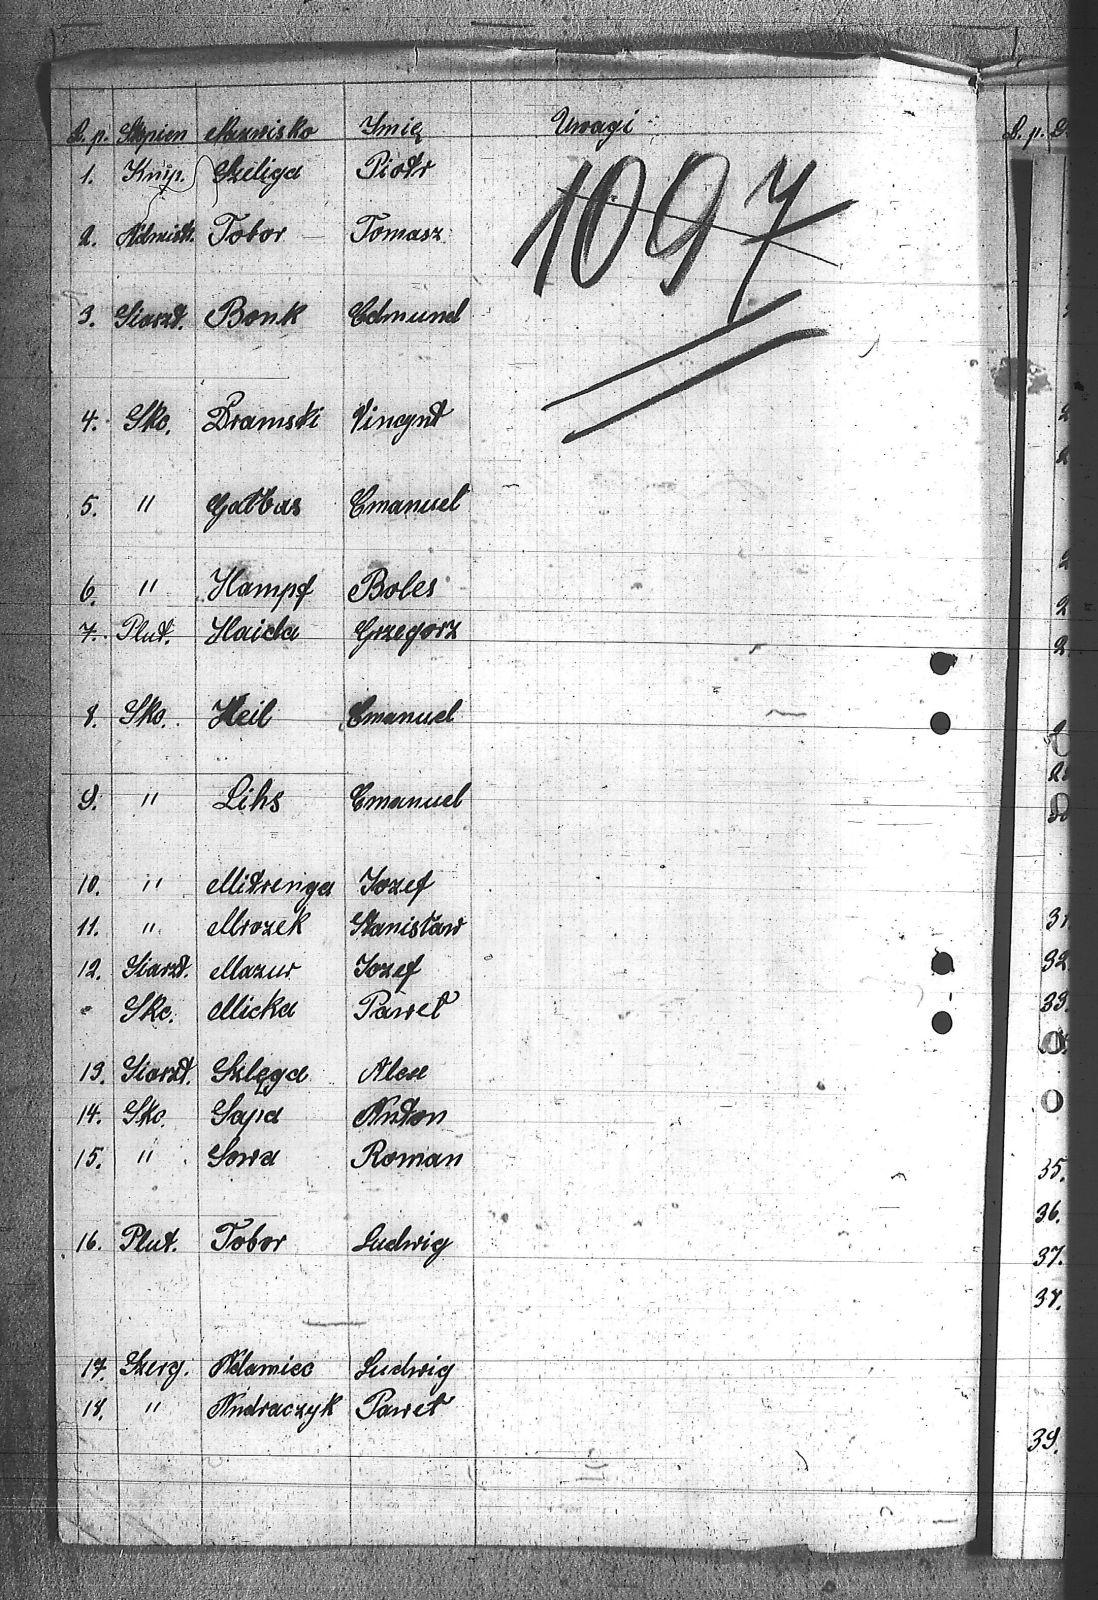 L. p. Stopien Nazwisko Imię Uwagi
1. Knp. Szeliga Piotr
1097
2. Admist. Tobor Tomasz
3. Siarzt. Bonk Edmund
4. Sko. Dramski Vincynt
5. " Gabbas Emanuel
6. " Hampf Boles
7. Plut. Haida Grzegorz
8. Sko. Heil Emanuel
9. " Lihs Emanuel
10. " Mitrenga Jozef
11. " Mrozek Stanisław
12. Siarzt. Mazur Jozef
Sko. Micka Paweł
13. Siarzt. Szlęga Alex
14. Sko. Sapa Anton
15. " Sowa Roman
16. Plut. Tobor Ludwig
17. Szerg. Adamiec Ludwig
18. " Andraczyk Paweł
L. p.
31.
32.
33.
35.
36.
37.
38.
39.